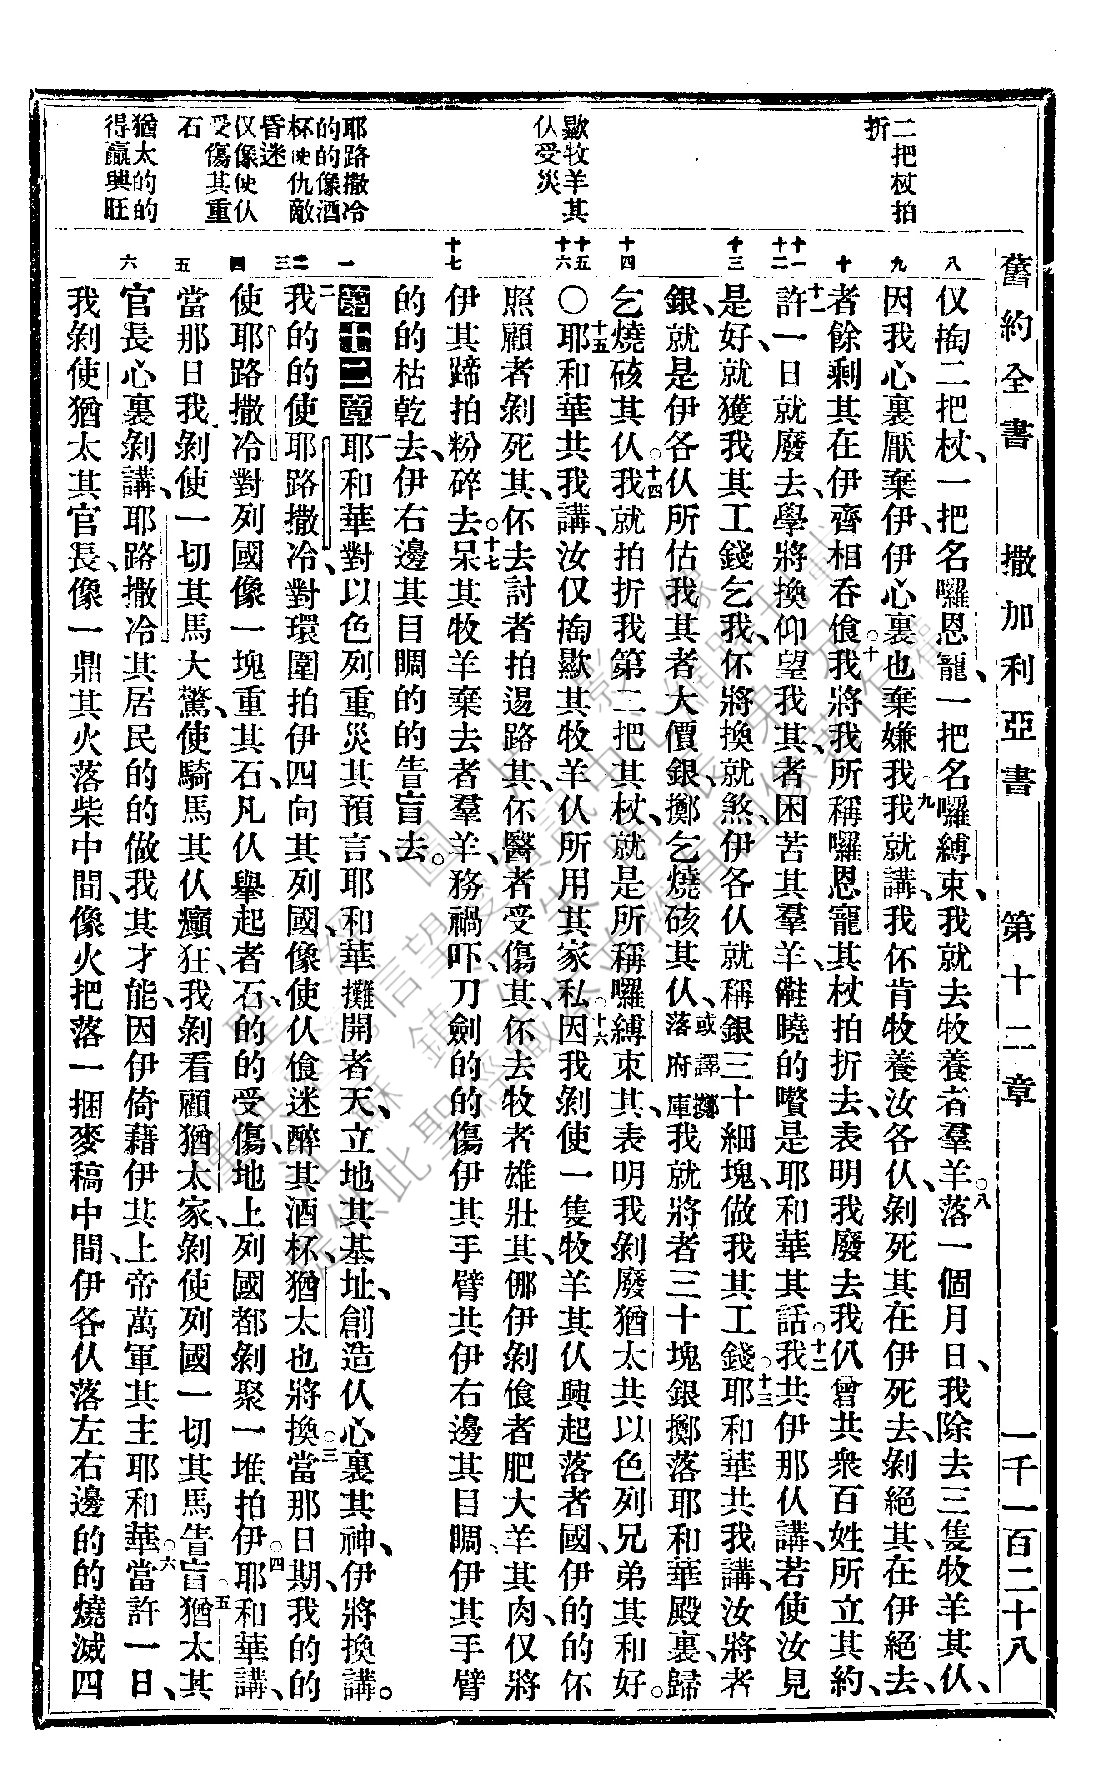 舊約全書 撒加利亞書 第十二章 一千一百二十八
二把杖拍
折
歇牧羊其
仈受災
耶路撒冷
的的像酒
杯使仇敵
昏迷
仅像使仈
受傷其重
石
猶太的的
得贏興旺
八
九
十
十一
十二
十三
十四
十五
十六
十七
一
二
三
四
五
六
仅掏二把杖、一把名囉恩寵、一把名囉縛束、我就去牧養者羣羊。○八落一個月日、我除去三隻牧羊其仈、
因我心裏厭棄伊、伊心裏也棄嫌我。九我就講、我伓肯牧養汝各仈、剝死其在伊死去、剝絕其、在伊絕去、
者餘剩其在伊齊相吞偹。○十我將我所稱囉恩寵其杖拍折去、表明我廢去我仈曾共衆百姓所立其約、
十一許一日就廢去、學將換仰望我其、者困苦其羣羊、僅曉的嚽是耶和華其話。○十二我共伊那仈講、若使汝見
是好、就獲我其工錢乞我、伓將換就煞、伊各仈就稱銀三十細塊、做我其工錢。○十三耶和華共我講、汝將者
銀、就是伊各仈所估我其者大價銀、擲乞燒硋其仈、或譯擲落府庫我就將者三十塊銀、擲落耶和華殿裏、歸
乞燒硋其仈。○十四我就拍折我第二把其杖、就是所稱囉縛束其、表明我剝廢猶太共以色列兄弟其和好。
〇十五耶和華共我講、汝仅掏歇其牧羊仈所用其家私。○十六因我剝使一隻牧羊其仈興起落者國、伊的的伓
照顧者剝死其、伓去討者拍逿路其、伓醫者受傷其、伓去牧者雄壯其、㑚伊剝偹者肥大羊其肉、仅將
伊其蹄拍粉碎去。○十七呆其牧羊棄去者羣羊、務禍吓、刀劍的的傷伊其手臂、共伊右邊其目睭、伊其手臂
的的枯乾去、伊右邊其目睭的的眚盲去。
第十二章一耶和華對以色列重災其預言、耶和華攤開者天、立地其基址、創造仈心裏其神、伊將換講。
二我的的使耶路撒冷、對環圍拍伊四向其列國、像使仈偹迷醉其酒杯、猶太也將換。○三當那日期、我的的
使耶路撒冷對列國像一塊重其石、凡仈舉起者石的的受傷、地上列國都剝聚一堆拍伊。○四耶和華講、
當那日我剝使一切其馬大驚、使騎馬其仈癲狂、我剝看顧猶太家、剝使列國一切其馬眚盲。○五猶太其
官長心裏剝講、耶路撒冷其居民的的做我其才能、因伊倚藉伊其上帝萬軍其主耶和華。○六當許一日、
我剝使猶太其官長、像一鼎其火落柴中間、像火把落一捆麥稿中間、伊各仈落左右邊的的燒滅四